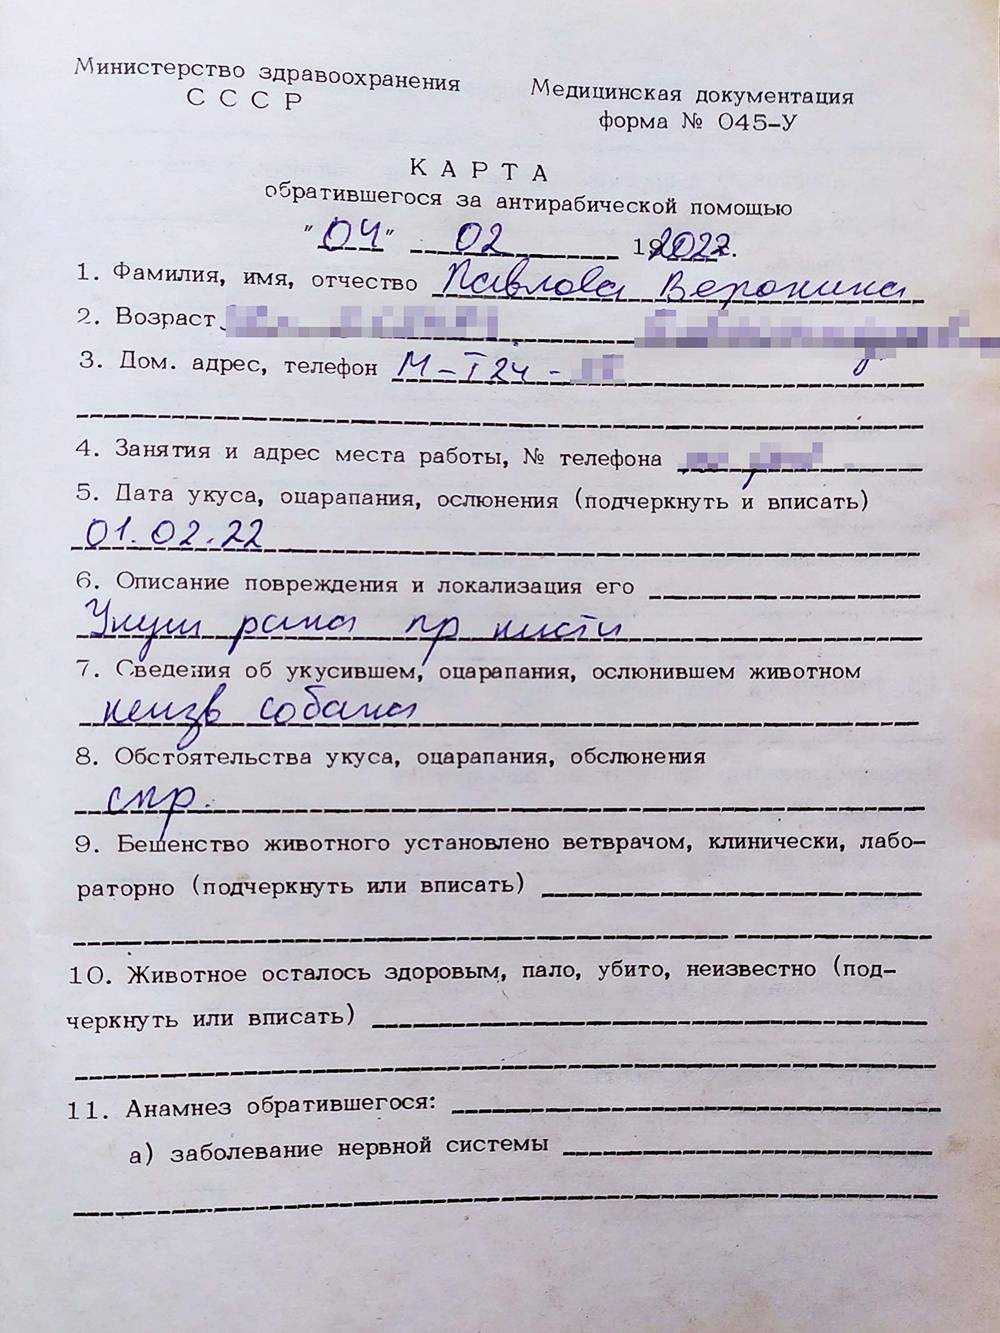 Министерство здравоохранения
С С С Р
Медицинская документация
форма № 045-У
К А Р Т А
обратившегося за антирабической помощью
"04" 02 192022.
1. Фамилия, имя, отчество Павлова Вероника
2. Возраст
3. Дом. адрес, телефон М-I 24-
4. Занятия и адрес места работы, № телефона
5. Дата укуса, оцарапания, ослюнения (подчеркнуть и вписать)
01.02.22
6. Описание повреждения и локализация его
Укуш рана пр кисти
7. Сведения об укусившем, оцарапания, ослюнившем животном
неизв собака
8. Обстоятельства укуса, оцарапания, обслюнения
спр.
9. Бешенство животного установлено ветврачом, клинически, лабо-
раторно (подчеркнуть или вписать)
10. Животное осталось здоровым, пало, убито, неизвестно (под-
черкнуть или вписать)
11. Анамнез обратившегося:
а) заболевание нервной системы